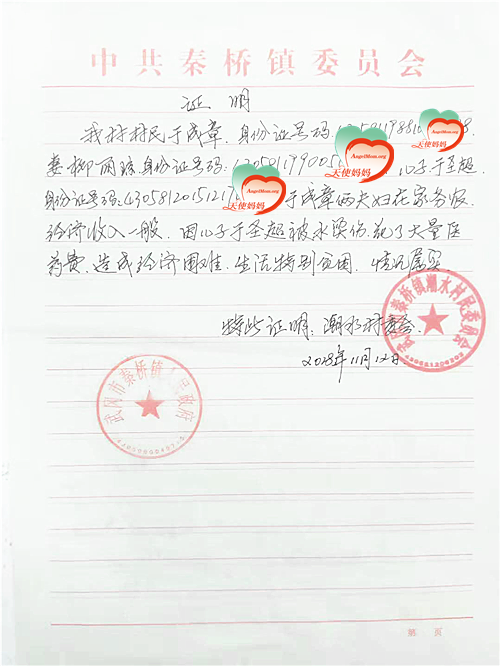 中共秦桥镇委员会
证明
我村村民于成章.身份证号码:
妻柳丽 身份证号码: 儿子于圣超
身份证号码: 于成章俩夫妇在家务农.
经济收入一般.因儿子于圣超被水烫伤.花了大量医
药费.造成经济困难.生活特别贫困.情况属实
特此证明:潮水村委会.
2018年11月12日
武冈市秦桥镇潮水村民委员会
武冈市秦桥镇人民政府
AngelMom.org
天使妈妈
AngelMom.org
天使妈妈
AngelMom.org
天使妈妈
第 页